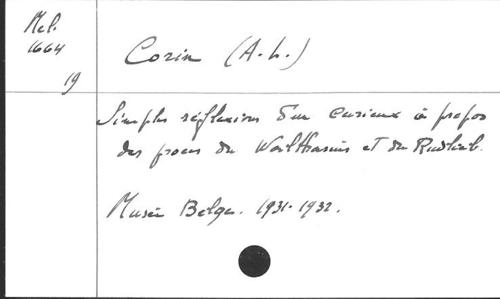 Mel.
1664
19
Corin (A.-L.)
Simples réflexions d'un curieux à propos
des proses du Waltharius et du Rudlieb.
Musée Belge. 1931-1932.